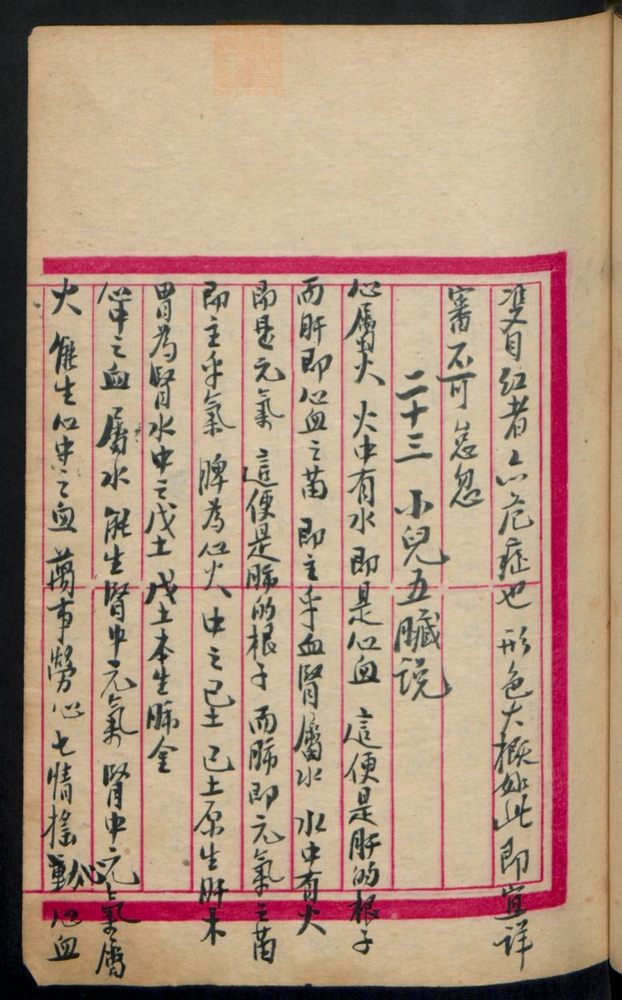 雙目紅者亦危症也 形色大概如此 即宜詳
審不可怠忽
二十三 小兒五臟说
心屬火 火中有水 即是心血 這便是肝的根子
而肝即心血之苗 即主乎血 腎屬水 水中有火
即是元氣 這便是肺的根子 而肺即元氣之苗
即主乎氣 脾為心火中之己土 己土原生肝木
胃為腎水中之戊土 戊土本生肺金
心中之血屬水 能生腎中元氣 腎中元氣屬
火 能生心中之血 萬事勞心 七情摇動 心血